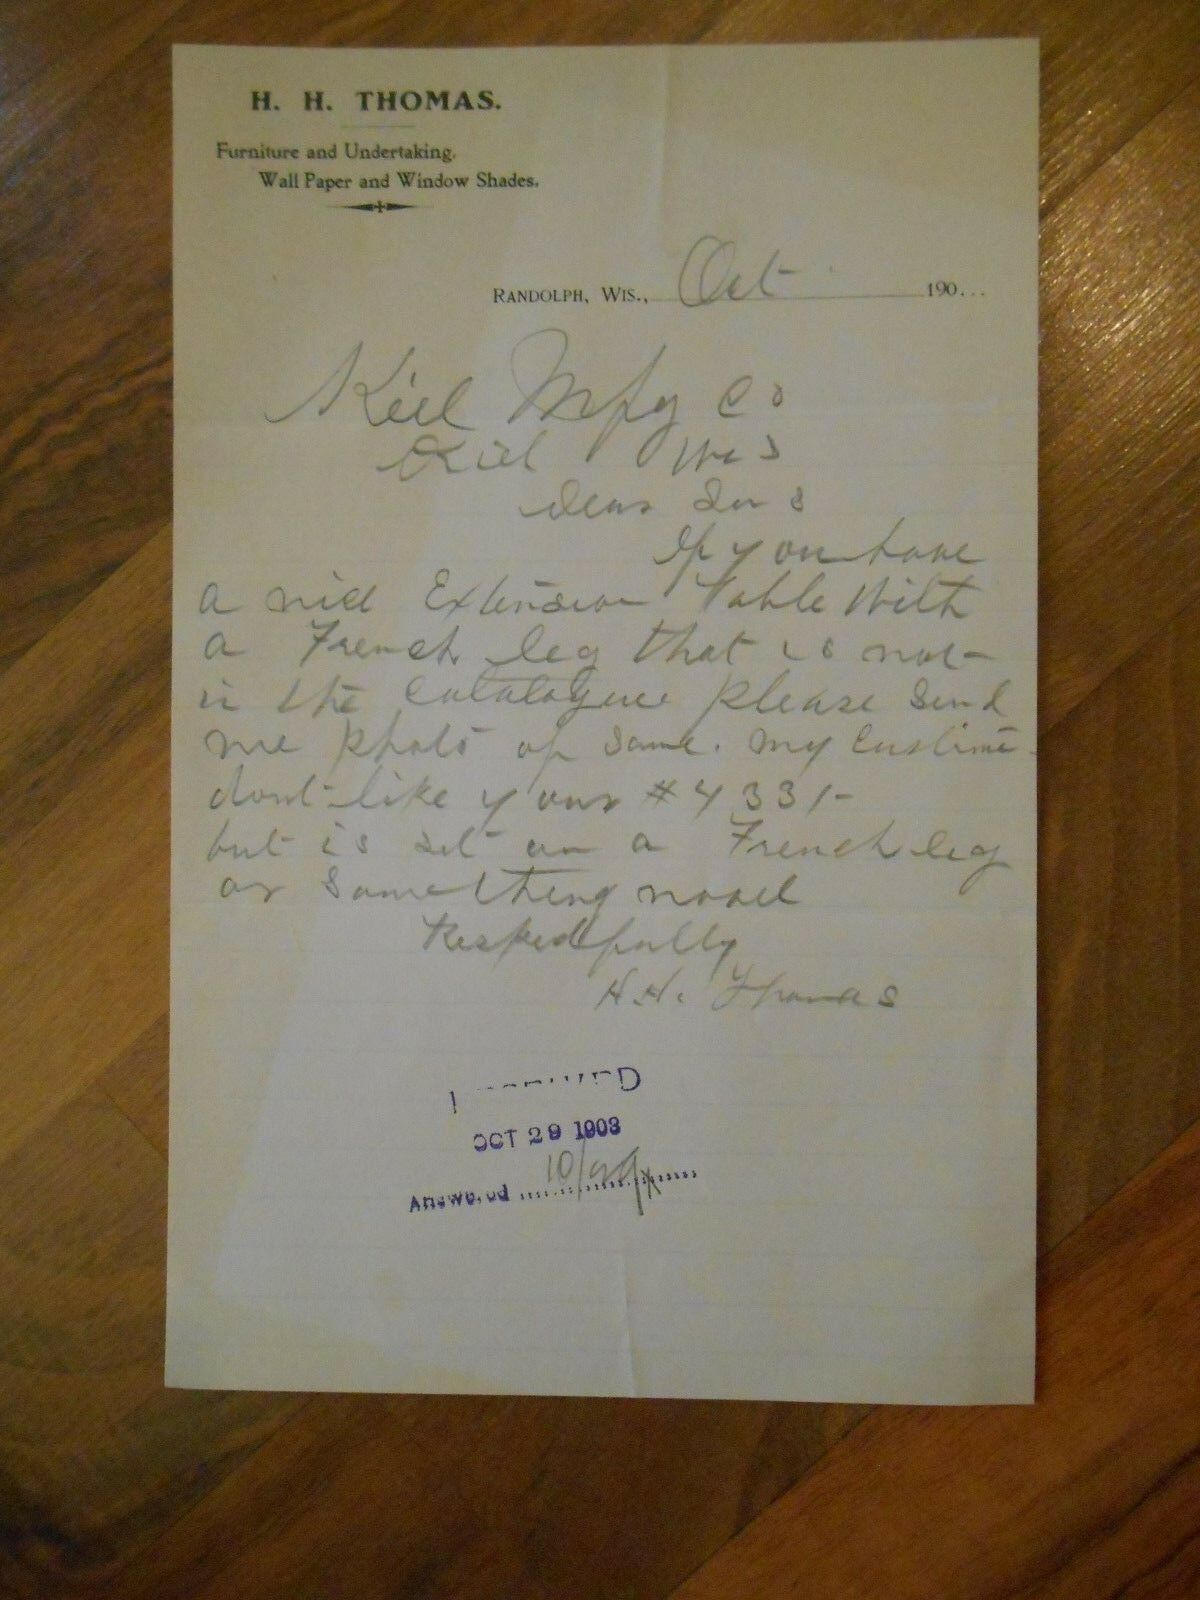 H. H. THOMAS.
Furniture and Undertaking,
Wall Paper and Window Shades.
RANDOLPH, WIS., Oct 190...
Kiel Mfg Co
Kiel Wis
Dear Sirs
If you have
a nice Extension Table With
a French leg that is not
in the Catalogue please send
me photo of same. My Custime
dont like your #4331-
but is set on a French leg
or something novel
Respectfully
H.H. Thomas
OCT 29 1903
Answered 10/29